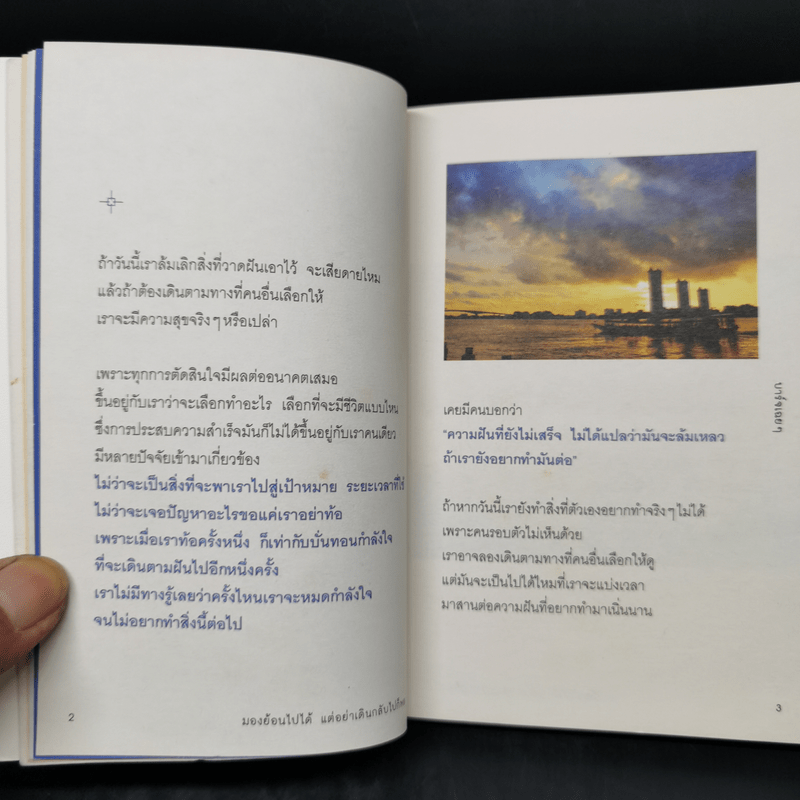 ถ้าวันนี้เราล้มเลิกสิ่งที่วาดฝันเอาไว้ จะเสียดายไหม
แล้วถ้าต้องเดินตามทางที่คนอื่นเลือกให้
เราจะมีความสุขจริงๆ หรือเปล่า
เพราะทุกการตัดสินใจมีผลต่ออนาคตเสมอ
ขึ้นอยู่กับเราว่าจะเลือกทำอะไร เลือกที่จะมีชีวิตแบบไหน
ซึ่งการประสบความสำเร็จมันก็ไม่ได้ขึ้นอยู่กับเราคนเดียว
มีหลายปัจจัยเข้ามาเกี่ยวข้อง
ไม่ว่าจะเป็นสิ่งที่จะพาเราไปสู่เป้าหมาย ระยะเวลาที่ใช้
ไม่ว่าจะเจอปัญหาอะไรขอแค่เราอย่าท้อ
เพราะเมื่อเราท้อครั้งหนึ่ง ก็เท่ากับบั่นทอนกำลังใจ
ที่จะเดินตามฝันไปอีกหนึ่งครั้ง
เราไม่มีทางรู้เลยว่าครั้งไหนเราจะหมดกำลังใจ
จนไม่อยากทำสิ่งนี้ต่อไป
2
มองย้อนไปได้ แต่อย่าเดินกลับไป
เคยมีคนบอกว่า
"ความฝันที่ยังไม่เสร็จ ไม่ได้แปลว่ามันจะล้มเหลว
ถ้าเรายังอยากทำมันต่อ"
ถ้าหากวันนี้เรายังทำสิ่งที่ตัวเองอยากทำจริงๆ ไม่ได้
เพราะคนรอบตัวไม่เห็นด้วย
เราอาจลองเดินตามทางที่คนอื่นเลือกให้ดู
แต่มันจะเป็นไปได้ไหมที่เราจะแบ่งเวลา
มาสานต่อความฝันที่อยากทำมาเนิ่นนาน
3